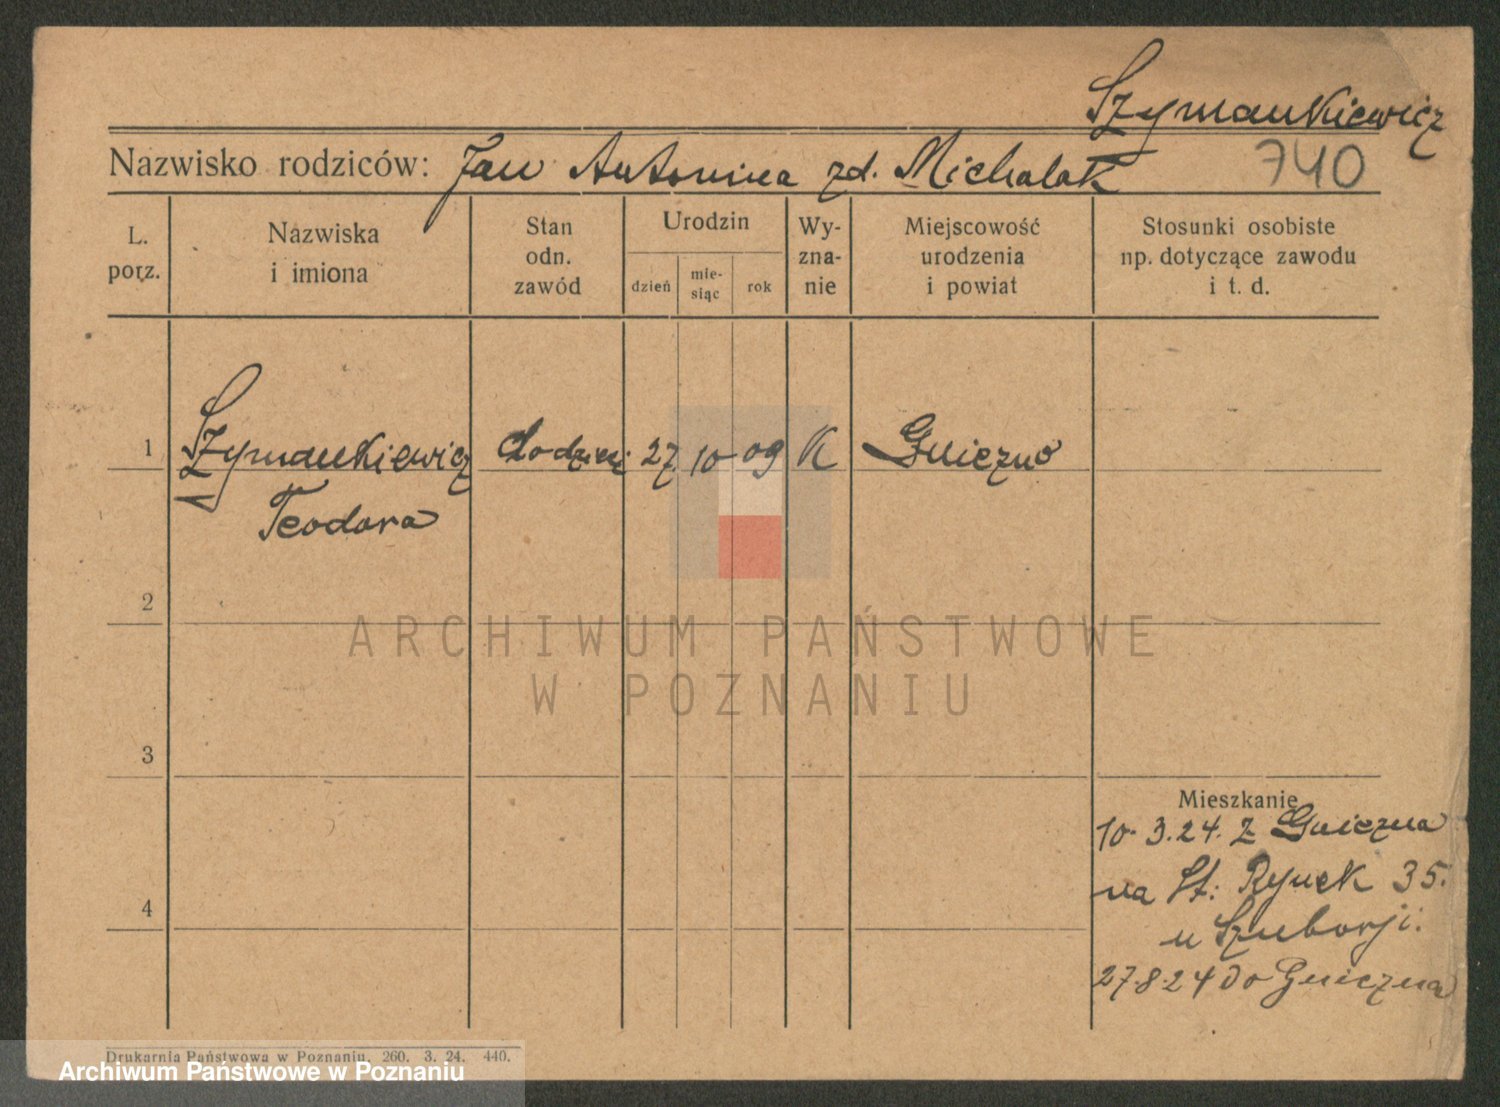 Szymankiewicz
Nazwisko rodziców: Jan Antonina zd. Michalak
740
L. porz.
Nazwiska i imiona
Stan odn. zawód
Urodzin
dzień
mie-siąc
rok
Wy-zna-nie
Miejscowość urodzenia i powiat
Stosunki osobiste np. dotyczące zawodu i t. d.
1 Szymankiewicz 27. 10 09 K Gniezno
Teodora
2
ARCHIWUM PAŃSTWOWE
W POZNANIU
3
Mieszkanie
10. 3. 24. z Gniezna
na St. Rynek 35.
4
27.8.24 do Gniezna
Drukarnia Państwowa w Poznaniu. 260. 3. 24. 440.
Archiwum Państwowe w Poznaniu